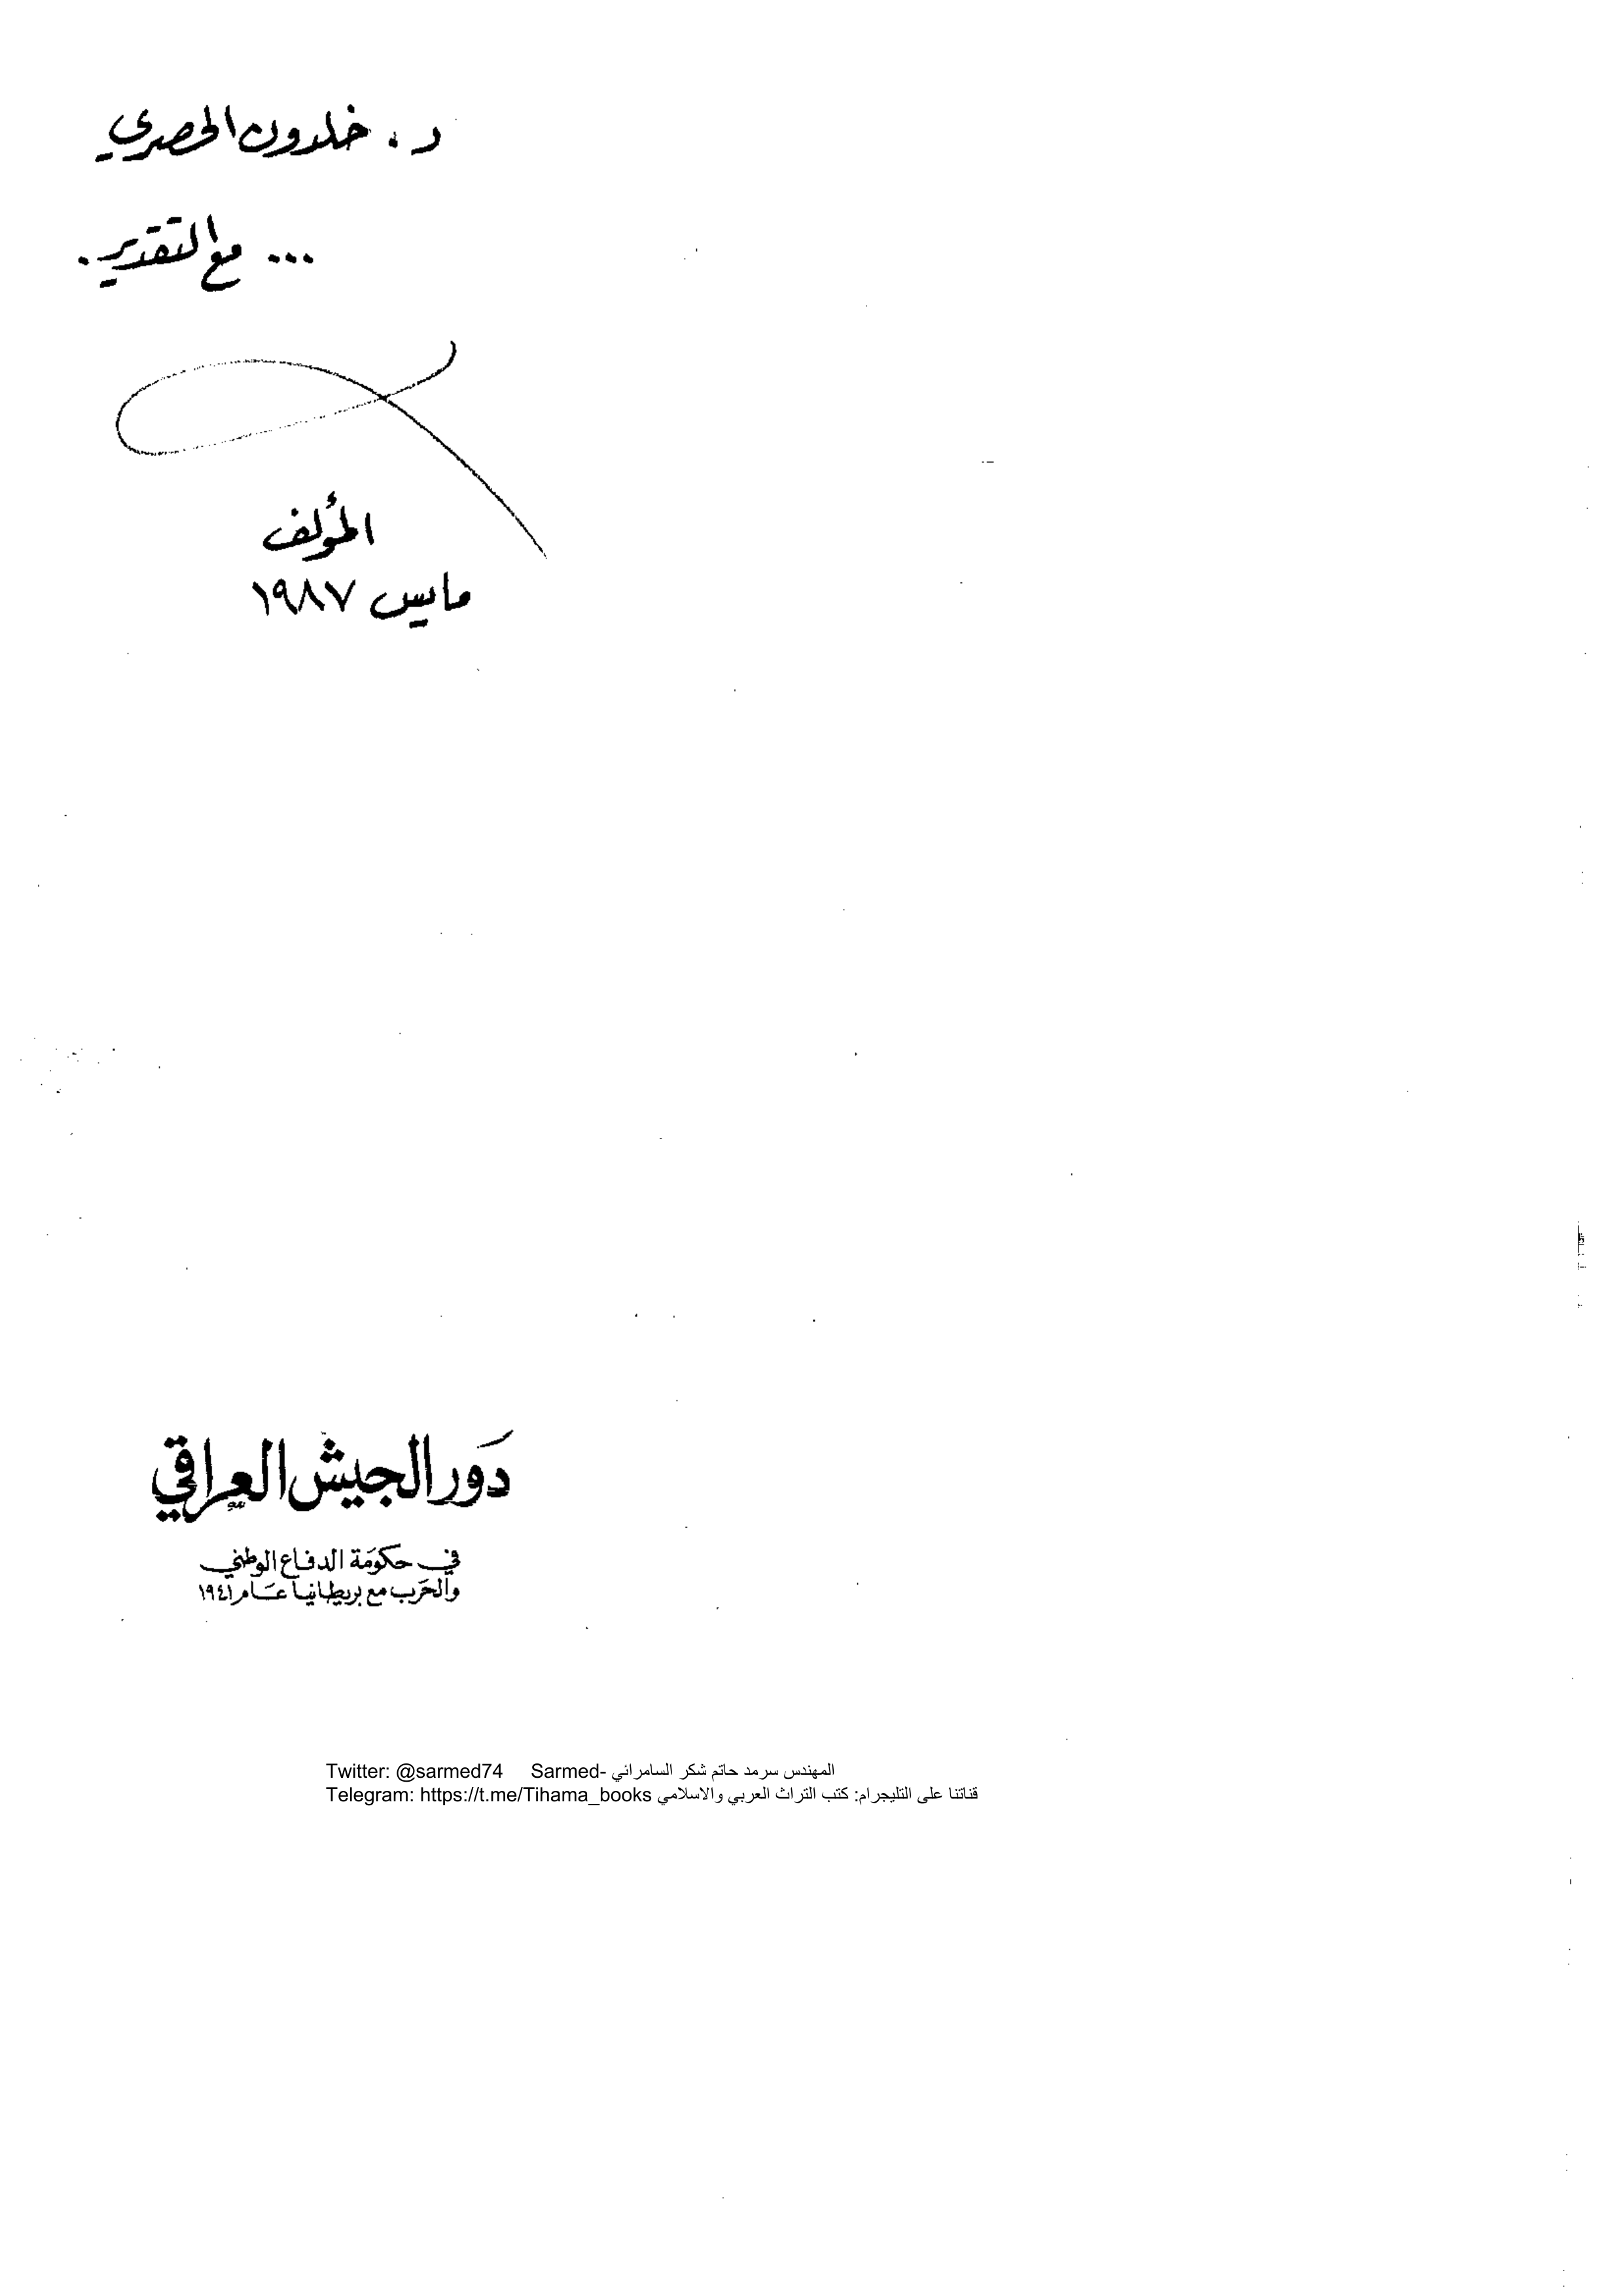 د. خلدون الحصري
... مع التقدير.
المؤلف
مايس ١٩٨٧
دَور الجيش العراقي
في حكومَة الدفاع الوطني
والحَرب مع بريطانيا عَام ١٩٤١
Twitter: @sarmed74 Sarmed- المهندس سرمد حاتم شكر السامرائي
Telegram: https://t.me/Tihama_books قناتنا على التليجرام: كتب التراث العربي والاسلامي